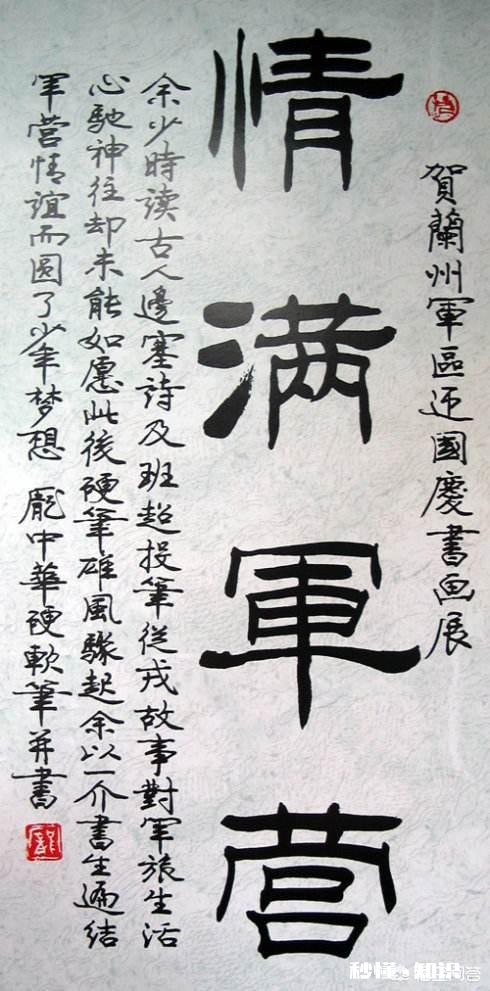 賀蘭州軍區迎國慶書画展
情满軍營
余少時读古人邊塞詩及班超投筆從戎故事對军旅生活
心馳神往却未能如愿此後硬筆雄風驟起余以一介書生遍结
军营情谊而圆了少年梦想 龐中華硬軟筆并書
秒懂 知识